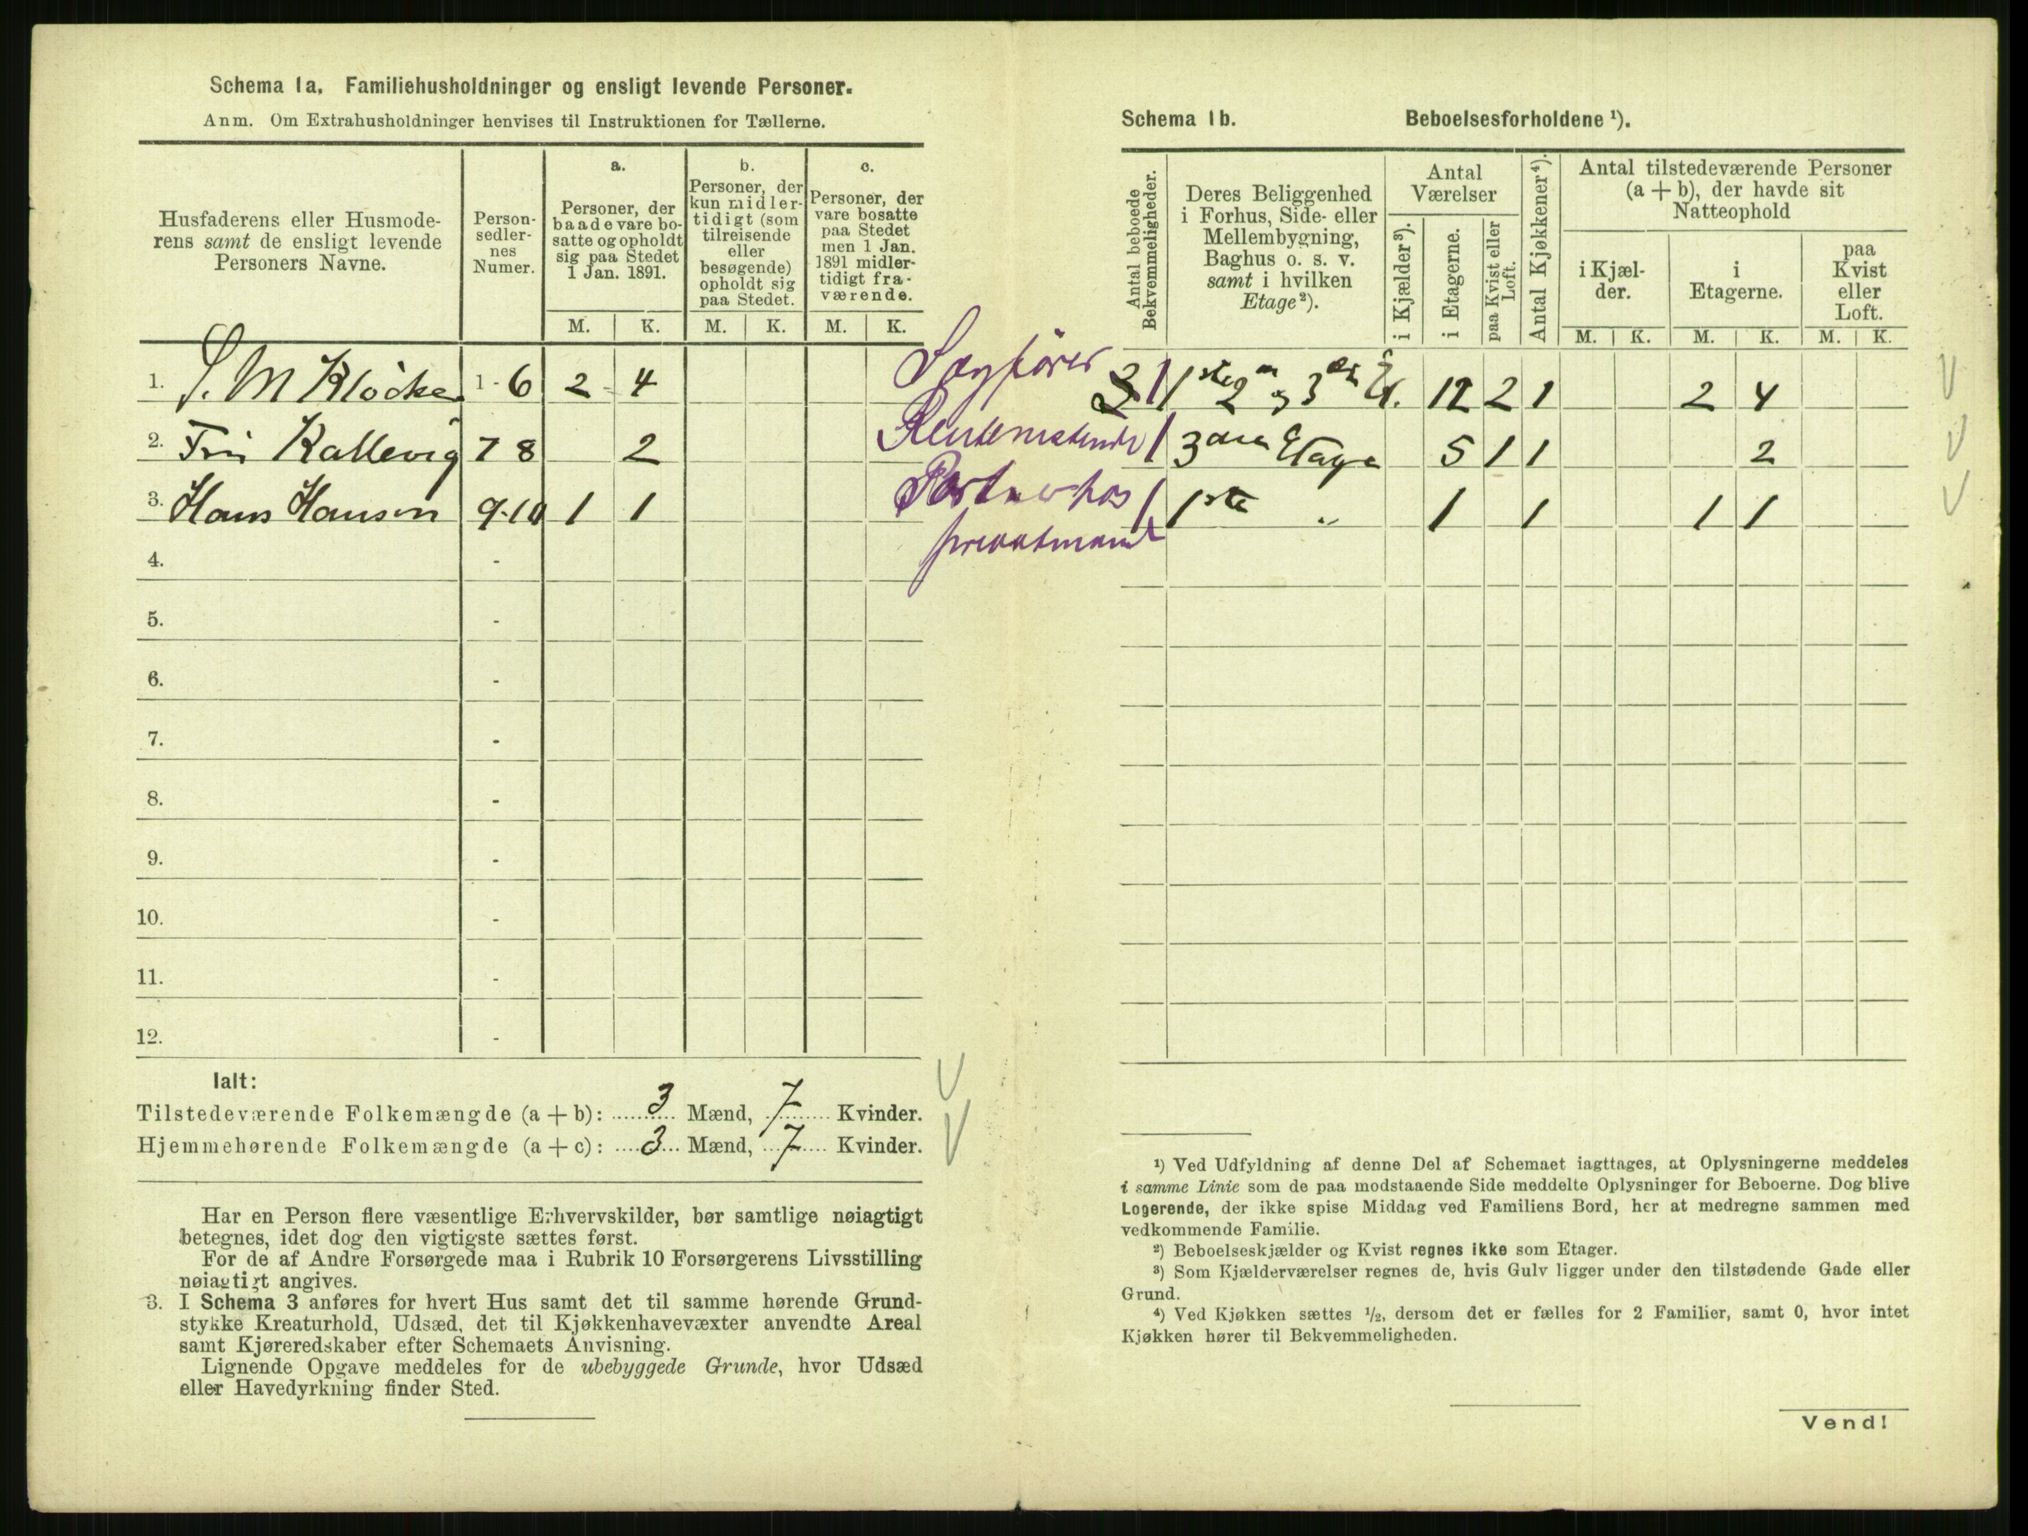 Schema 1a. Familiehusholdninger og ensligt levende Personer.
Anm. Om Extrahusholdninger henvises til Instruktionen for Tællerne.
Husfaderens eller Husmode-
rens samt de ensligt levende
Personers Navne.
Person-
sedler-
nes
Numer.
a.
Personer, der
baade vare bo-
satte og opholdt
sig paa Stedet
1 Jan. 1891.
b.
Personer, der
kun midler-
tidigt (som
tilreisende
eller
besøgende)
opholdt sig
paa Stedet.
c.
Personer, der
vare bosatte
paa Stedet
men 1 Jan.
1891 midler-
tidigt fra-
værende.
M. K. M. K. M. K.
1. S. M Kløcker 1-6 2 - 4
2. Frü Kallevig 7 8 2
3. Hans Hansen 9-10 1 1
4. -
5. -
6. -
7. -
8. -
9. -
10. -
11. -
12. -
Ialt:
Tilstedeværende Folkemængde (a + b): 3 Mænd, 7 Kvinder.
Hjemmehørende Folkemængde (a + c): 3 Mænd, 7 Kvinder.
Har en Person flere væsentlige Erhvervskilder, bør samtlige nøiagtigt
betegnes, idet dog den vigtigste sættes først.
For de af Andre Forsørgede maa i Rubrik 10 Forsørgerens Livsstilling
nøiagtigt angives.
3. I Schema 3 anføres for hvert Hus samt det til samme hørende Grund-
stykke Kreaturhold, Udsæd, det til Kjøkkenhavevæxter anvendte Areal
samt Kjøreredskaber efter Schemaets Anvisning.
Lignende Opgave meddeles for de ubebyggede Grunde, hvor Udsæd
eller Havedyrkning finder Sted.
Schema 1b. Beboelsesforholdene ¹).
Antal beboede
Bekvemmeligheder.
Deres Beliggenhed
i Forhus, Side- eller
Mellembygning,
Baghus o. s. v.
samt i hvilken
Etage²).
Antal
Værelser
i Kjælder³).
i Etagerne.
paa Kvist eller
Loft.
Antal Kjøkkener⁴).
Antal tilstedeværende Personer
(a + b), der havde sit
Natteophold
i Kjæl-
der.
i
Etagerne.
paa
Kvist
eller
Loft.
M. K. M. K. M. K.
Sagfører 1 1ste 2 og 3die Et. 12 2 1 2 4
Rentenerende 1 3die Etage 5 1 1 2
Portner hos 1 1ste " 1 1 1 1
privatmand
¹) Ved Udfyldning af denne Del af Schemaet iagttages, at Oplysningerne meddeles
i samme Linie som de paa modstaaende Side meddelte Oplysninger for Beboerne. Dog blive
Logerende, der ikke spise Middag ved Familiens Bord, her at medregne sammen med
vedkommende Familie.
²) Beboelseskjælder og Kvist regnes ikke som Etager.
³) Som Kjælderværelser regnes de, hvis Gulv ligger under den tilstødende Gade eller
Grund.
⁴) Ved Kjøkken sættes ½, dersom det er fælles for 2 Familier, samt 0, hvor intet
Kjøkken hører til Bekvemmeligheden.
Vend!